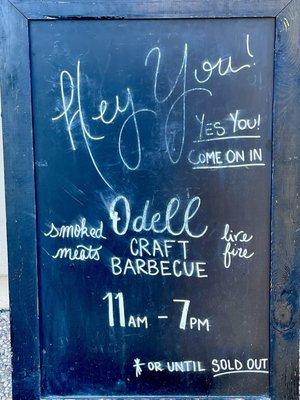 Hey You!
YES YOU!
COME ON IN
Odell
smoked meats
CRAFT
BARBECUE
live fire
11AM - 7PM
OR UNTIL SOLD OUT